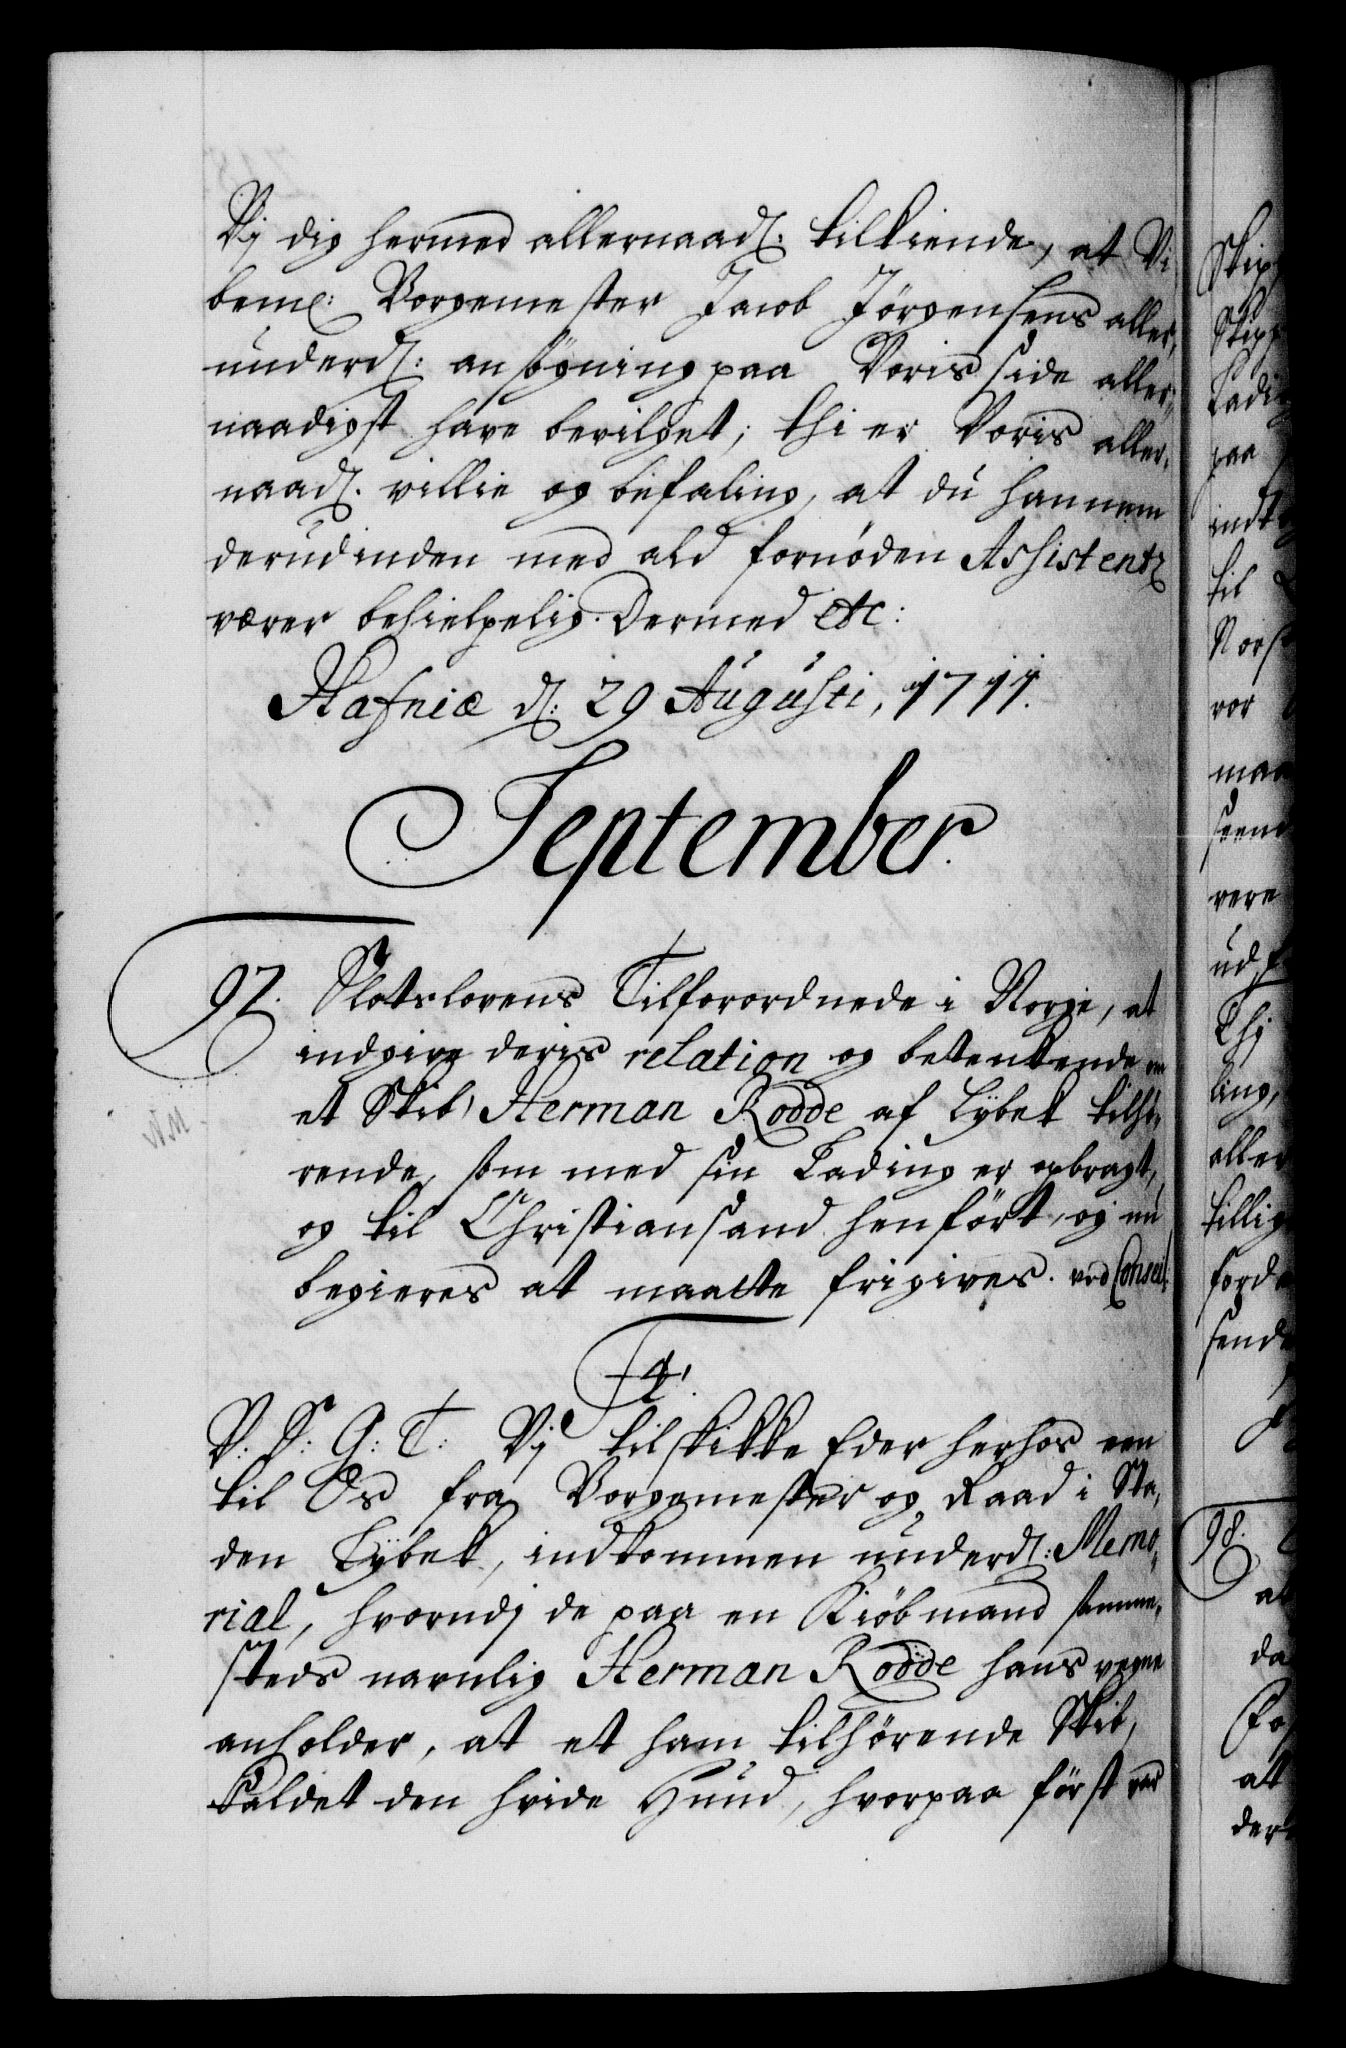 Vj dig hermed allernaad: tilkiende, at Vi
bemt: Borgemester Jacob Jörgensens aller„
underd: ansögning paa Voris side aller„
naadigst have bevilget; thi er Voris aller„
naad: villie og befaling, at du hannem
derudinden med ald fornöden Assistentz
værer behielpelig. Dermed etc:
Hafniæ d: 29 Augusti, 1711.
September.
97. Slotslovens Tilforordnede i Norge, at
indgive deris relation og betenkende om
et Skib, Herman Rodde af Lÿbek tilhö„
rende, som med sin Lading er opbragt,
og til Christiansand henfört, og nu
begieres at maatte frigives. ved Conseil:
F4.
V: S: G: T: Vj tilskikke Eder herhos een
til Os fra Borgemester og Raad i Sta„
den Lÿbek, indkommen underd: Memo„
rial, hvorudj de paa en Kiöbmand samme„
steds navnlig Herman Rodde hans vegne
anholder, at et ham tilhörende Skib,
kaldet den hvide Hund, hvorpaa först var